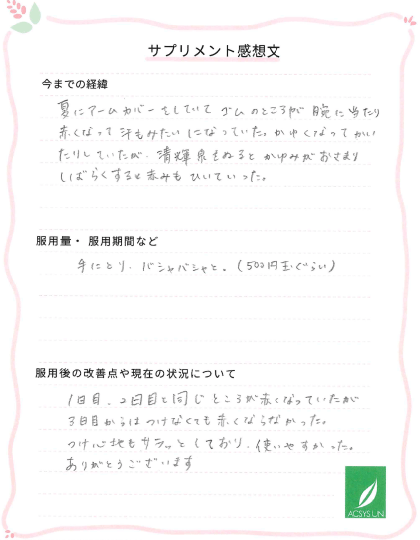 サプリメント感想文
今までの経緯
夏にアームカバーをしていて ゴムのところが 腕に当たり
赤くなって 汗もみたいになっていた。かゆくなってかい
たりしていたが、清輝泉をぬると かゆみがおさまり
しばらくすると赤みもひいていった。
服用量・ 服用期間など
手にとり、バシャバシャと。(500円玉ぐらい)
服用後の改善点や現在の状況について
1日目、2日目と同じところが赤くなっていたが
3日目からはつけなくても赤くならなかった。
つけ心地もサラッとしており、使いやすかった。
ありがとうございます
ACSYS UN